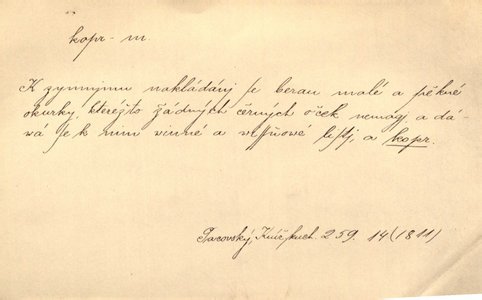 kopr - m.
K zymnjmu nakládánj se berau malé a pěkné
okurky, kteréžto žádných černých oček nemagj, a dá-
wá se k nim winné a wissňowé listj, a kopr.
Pacovský, Kniž. kuch. 259. 14 (1811)